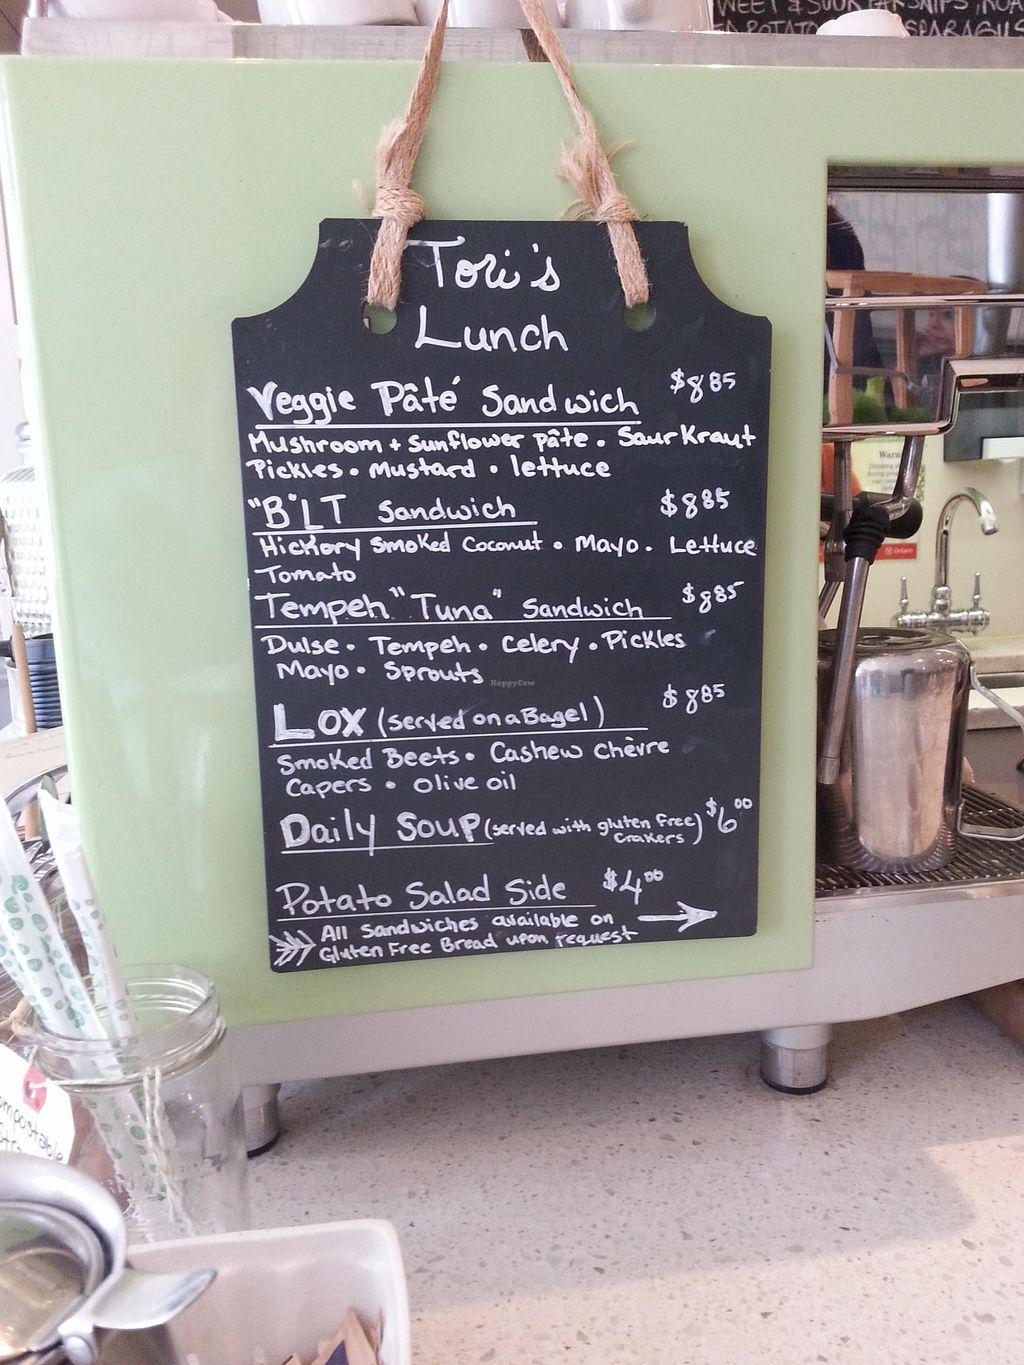 WEET & SOUR PARSNIPS, ROA
POTATO
SPARAGUS
Tori's
Lunch
Veggie Pâté Sandwich $8.85
Mushroom + Sunflower pâte • SaurKraut
Pickles • Mustard • lettuce
"B"LT Sandwich $8.85
Hickory Smoked Coconut • Mayo • Lettuce
Tomato
Tempeh "Tuna" Sandwich $8.85
Dulse • Tempeh • Celery • Pickles
Mayo • Sprouts
HappyCow
LOX (served on a Bagel) $8.85
Smoked Beets • Cashew Chèvre
Capers • Olive oil
Daily Soup (served with gluten free Crakers) $6.00
Potato Salad Side $4.00
All Sandwiches available on
Gluten Free Bread upon request
Warn
Ontario
ompostable